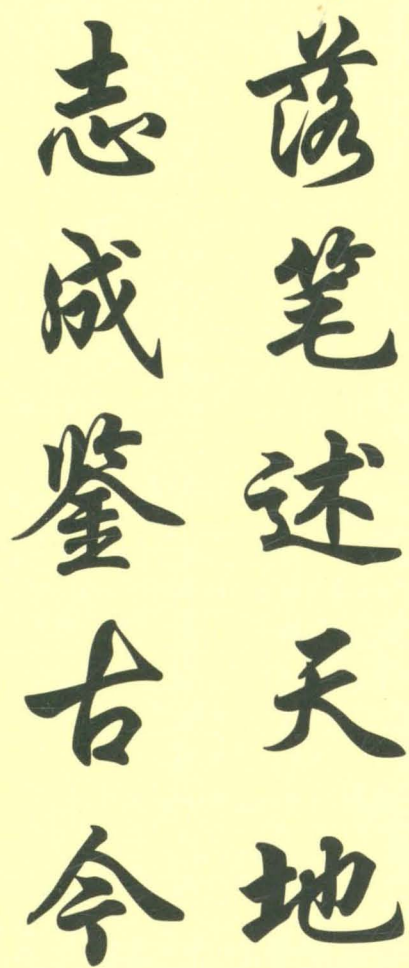 落笔述天地
志成鉴古今